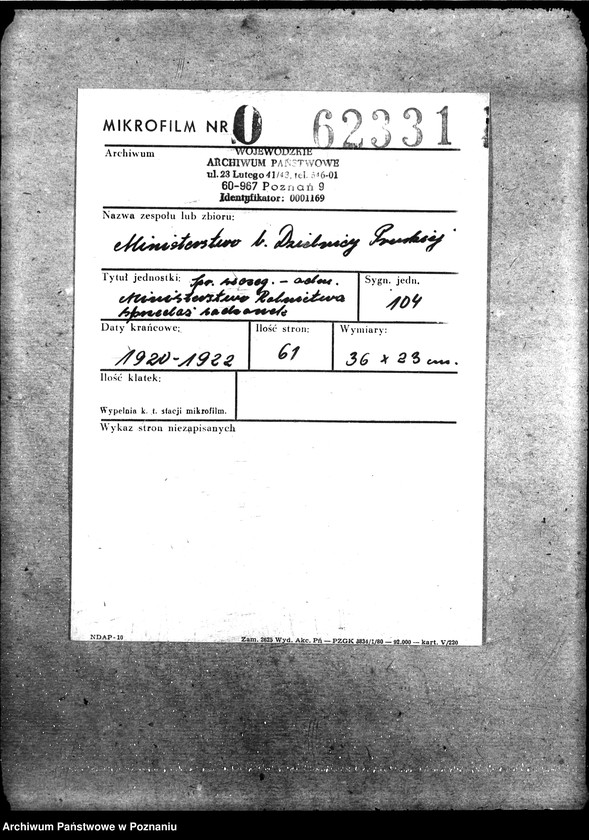 MIKROFILM NR O 62331
Archiwum
WOJEWÓDZKIE
ARCHIWUM PAŃSTWOWE
ul. 23 Lutego 41/43, tel. 546-01
60-967 Poznań 9
Identyfikator: 0001169
Nazwa zespołu lub zbioru:
Ministerstwo b. Dzielnicy Pruskiej
Tytuł jednostki: Spr. - adm.
Ministerstwo Rolnictwa
sprzedaż
Sygn. jedn.
104
Daty krańcowe:
1920-1922
Ilość stron:
61
Wymiary:
36 x 23 cm.
Ilość klatek:
Wypełnia k. t. stacji mikrofilm.
Wykaz stron niezapisanych
NDAP-10
Zam. 2625 Wyd. Akc. Pń — PZGK 3834/1/80 — 92.000 — kart. V/220
Archiwum Państwowe w Poznaniu